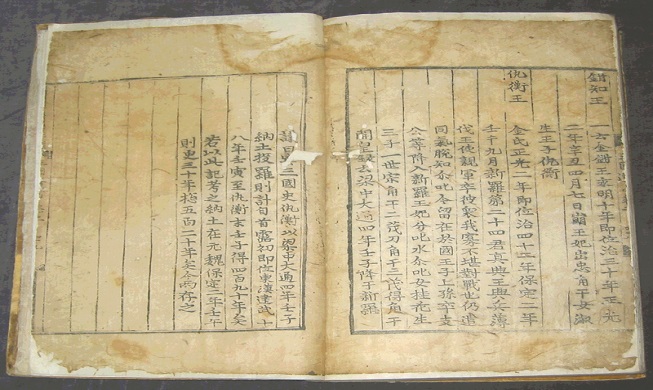 鉗知王
一云金鉗王永明十年即位治三十年正光
二年辛丑四月七日崩王妃出忠角干女淑
生王子仇衡
仇衡王
金氏正光二年即位治四十二年保定二年
壬午九月新羅第二十四君真興王興兵薄
伐王使親軍卒彼衆我寡不堪對戰也仍遣
同氣脫知尒叱今留在於國王子上孫卒支
公等降入新羅王妃分叱水尒叱女桂花生
三子一世宗角干二茂刀角干三茂得角干
開皇録云梁中大通四年壬子降于新羅
議曰 三國史仇衡以梁中大通四年壬子
納土投羅則計自首露初即位東漢建武十
八年壬寅至仇衡末壬子得四百九十年矣
若以此記考之納土在元魏保定二年壬午
則更三十年揔五百二十年矣今兩存之